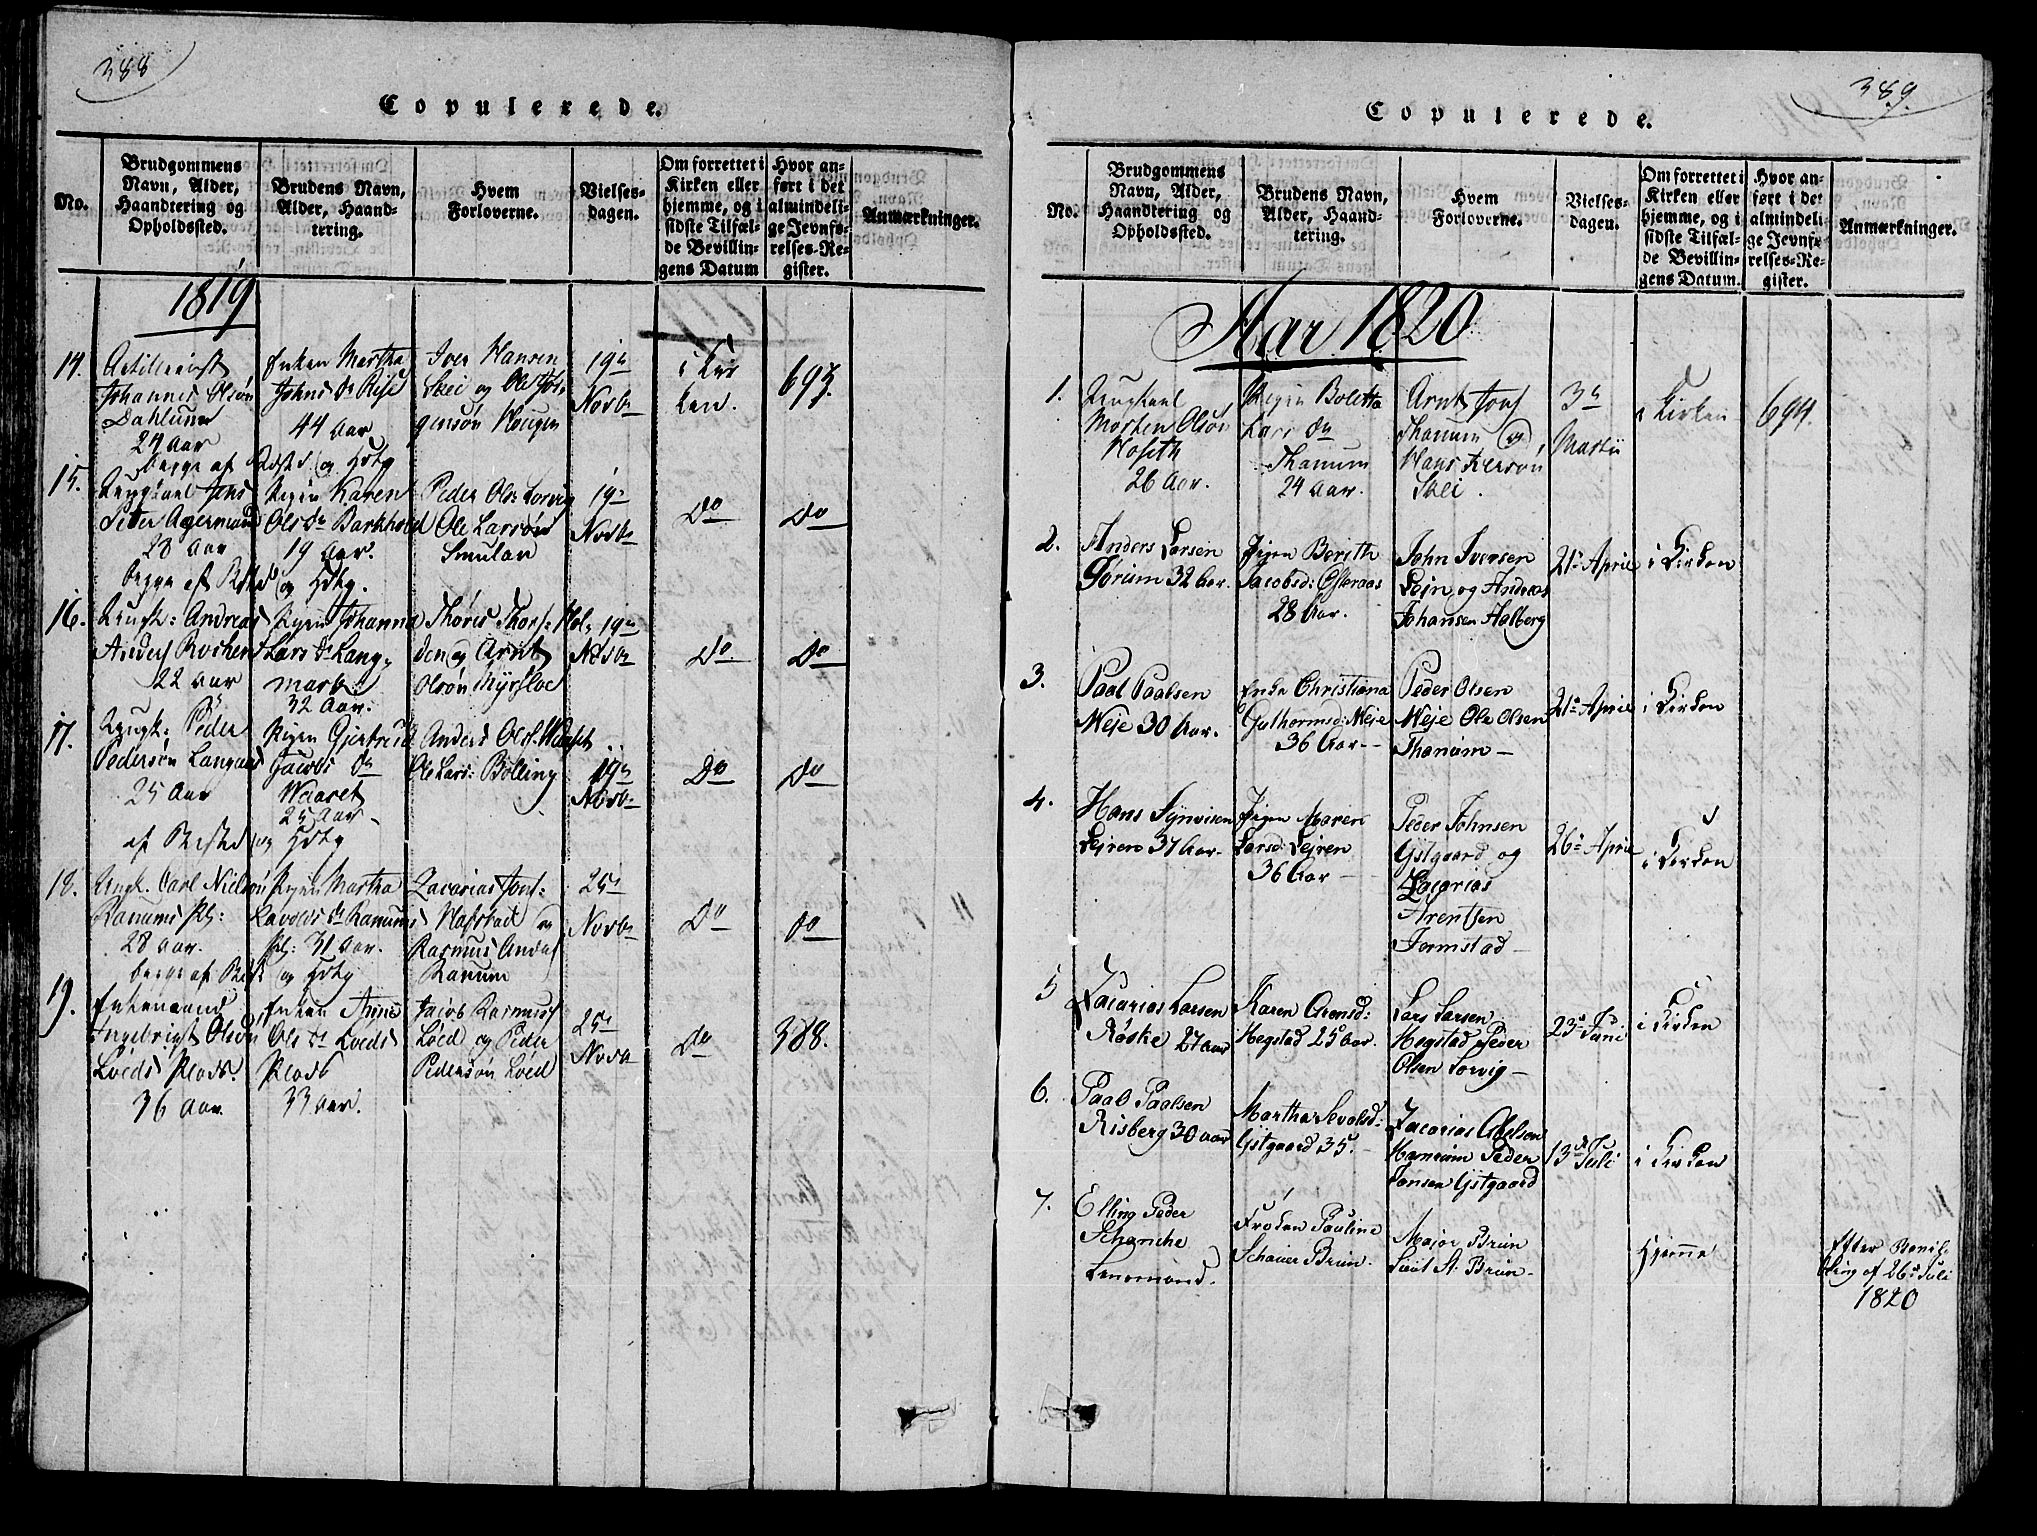 388
Copulerede.
No.
Brudgommens
Navn, Alder,
Haandtering og
Opholdssted.
Brudens Navn,
Alder, Haand-
tering.
Hvem
Forloverne.
Vielses-
dagen.
Om forrettet i
Kirken eller
hjemme, og i
sidste Tilfæl-
de Bevillin-
gens Datum
Hvor an-
ført i det
almindeli-
ge Jevnfø-
relses-Re-
gister.
Anmærkninger.
1819
14.
Artillerist
Johannes Olsøn
Dahlum
24 Aar
Enken Martha
Johns Dr
44 Aar
Iver Hansen
Skei og Ole
gensøn Hougen
19de
Novbr
i Kir
ken.
693.
15.
Ungkarl Jens
Peter Agermand
28 Aar
Pigen Karen
Ols Dr Barkhold
19 Aar.
Peder Ols: Lorvig
Ole Larsøn
Smulan
19de
Novbr
Do
Do
16.
Ungk: Andreas
Anders
22 Aar
Pigen Johanna
Lars Dr Lang-
mark
32 Aar.
Thøris Thors: Hol-
den og Arnt
Olsøn Myrsloe
19de
Novbr
Do
Do
17.
Ungk: Peder
Pedersøn Langaas
25 Aar
Pigen Gjertrud
Jacobs Dr
Waaret
25 Aar
Anders Ols: Waaret
Ole Lars: Bolling
19de
Novbr
Do
Do
18.
Ungk. Carl Nielsøn
Ranums Pl:
28 Aar.
Pigen Martha
Ranums
Pl: 31 Aar.
Zacarias Jons:
Halstad og
Rasmus Anders
Ranum
25de
Novbr
Do
Do
19.
Enkemand
Ingebrigt Olsøn
Loeds Plads.
36 Aar.
Enken Anne
Ols Dr Loeds
Plads
33 Aar.
Jacob Rasmus
Loed og Peder
Pedersøn Loed
25de
Novbr
Do
388.
389.
Copulerede.
No.
Brudgommens
Navn, Alder,
Haandtering og
Opholdssted.
Brudens Navn,
Alder, Haand-
tering.
Hvem
Forloverne.
Vielses-
dagen.
Om forrettet i
Kirken eller
hjemme, og i
sidste Tilfæl-
de Bevillin-
gens Datum.
Hvor an-
ført i det
almindeli-
ge Jevnfø-
relses-Re-
gister.
Anmærkninger.
Aar 1820
1.
Ungkarl
Morten Olsøn
Hoseth
26 Aar.
Pigen Bolette
Lars Dr
Thanum
24 Aar.
Arnt Jons
Thanum og
Hans Iversøn
Skei.
3de
Martii
i Kirken
694.
2.
Anders Larsen
Sørum 32 Aar.
Pigen Berith
Jacobsd: Østeraas
28 Aar.
John Iversen
Lein og Andreas
Johansen Aalberg
21de April
i Kirken
3.
Paal Paalsen
Weje 30 Aar.
Enke Christiana
Guthormsd: Weje
36 Aar
Peder Olsen
Weje Ole Olsen
Thanum
21de April
i Kirken
4.
Hans Synvisen
Lejren 37 Aar.
Pigen Maren
Larsd: Lejren
36 Aar
Peder Johnsen
Ystgaard og
Zacarias
Arentsen
Formstad
26de April
i Kirken
5
Zacarias Larsen
Røske 27 Aar
Karen Arensd:
Hegstad 25 Aar.
Lars Larsen
Hegstad Peder
Olsen Lorvig
23de Juni
i Kirken
6.
Paal Paalsen
Risberg 30 Aar
Martha Sevalsd:
Ystgaard 35.
Zacarias Abelsen
Hammum Peder
Jonsen Ystgaard
13de Juli
i Kirken
7.
Elling Peder
Schanche
Lensmand.
Frøken Pauline
Schauer Brun.
Major Brun
Lieut St. Brun
Hjemme
Efter Bevil-
ling af 26de Juli
1820